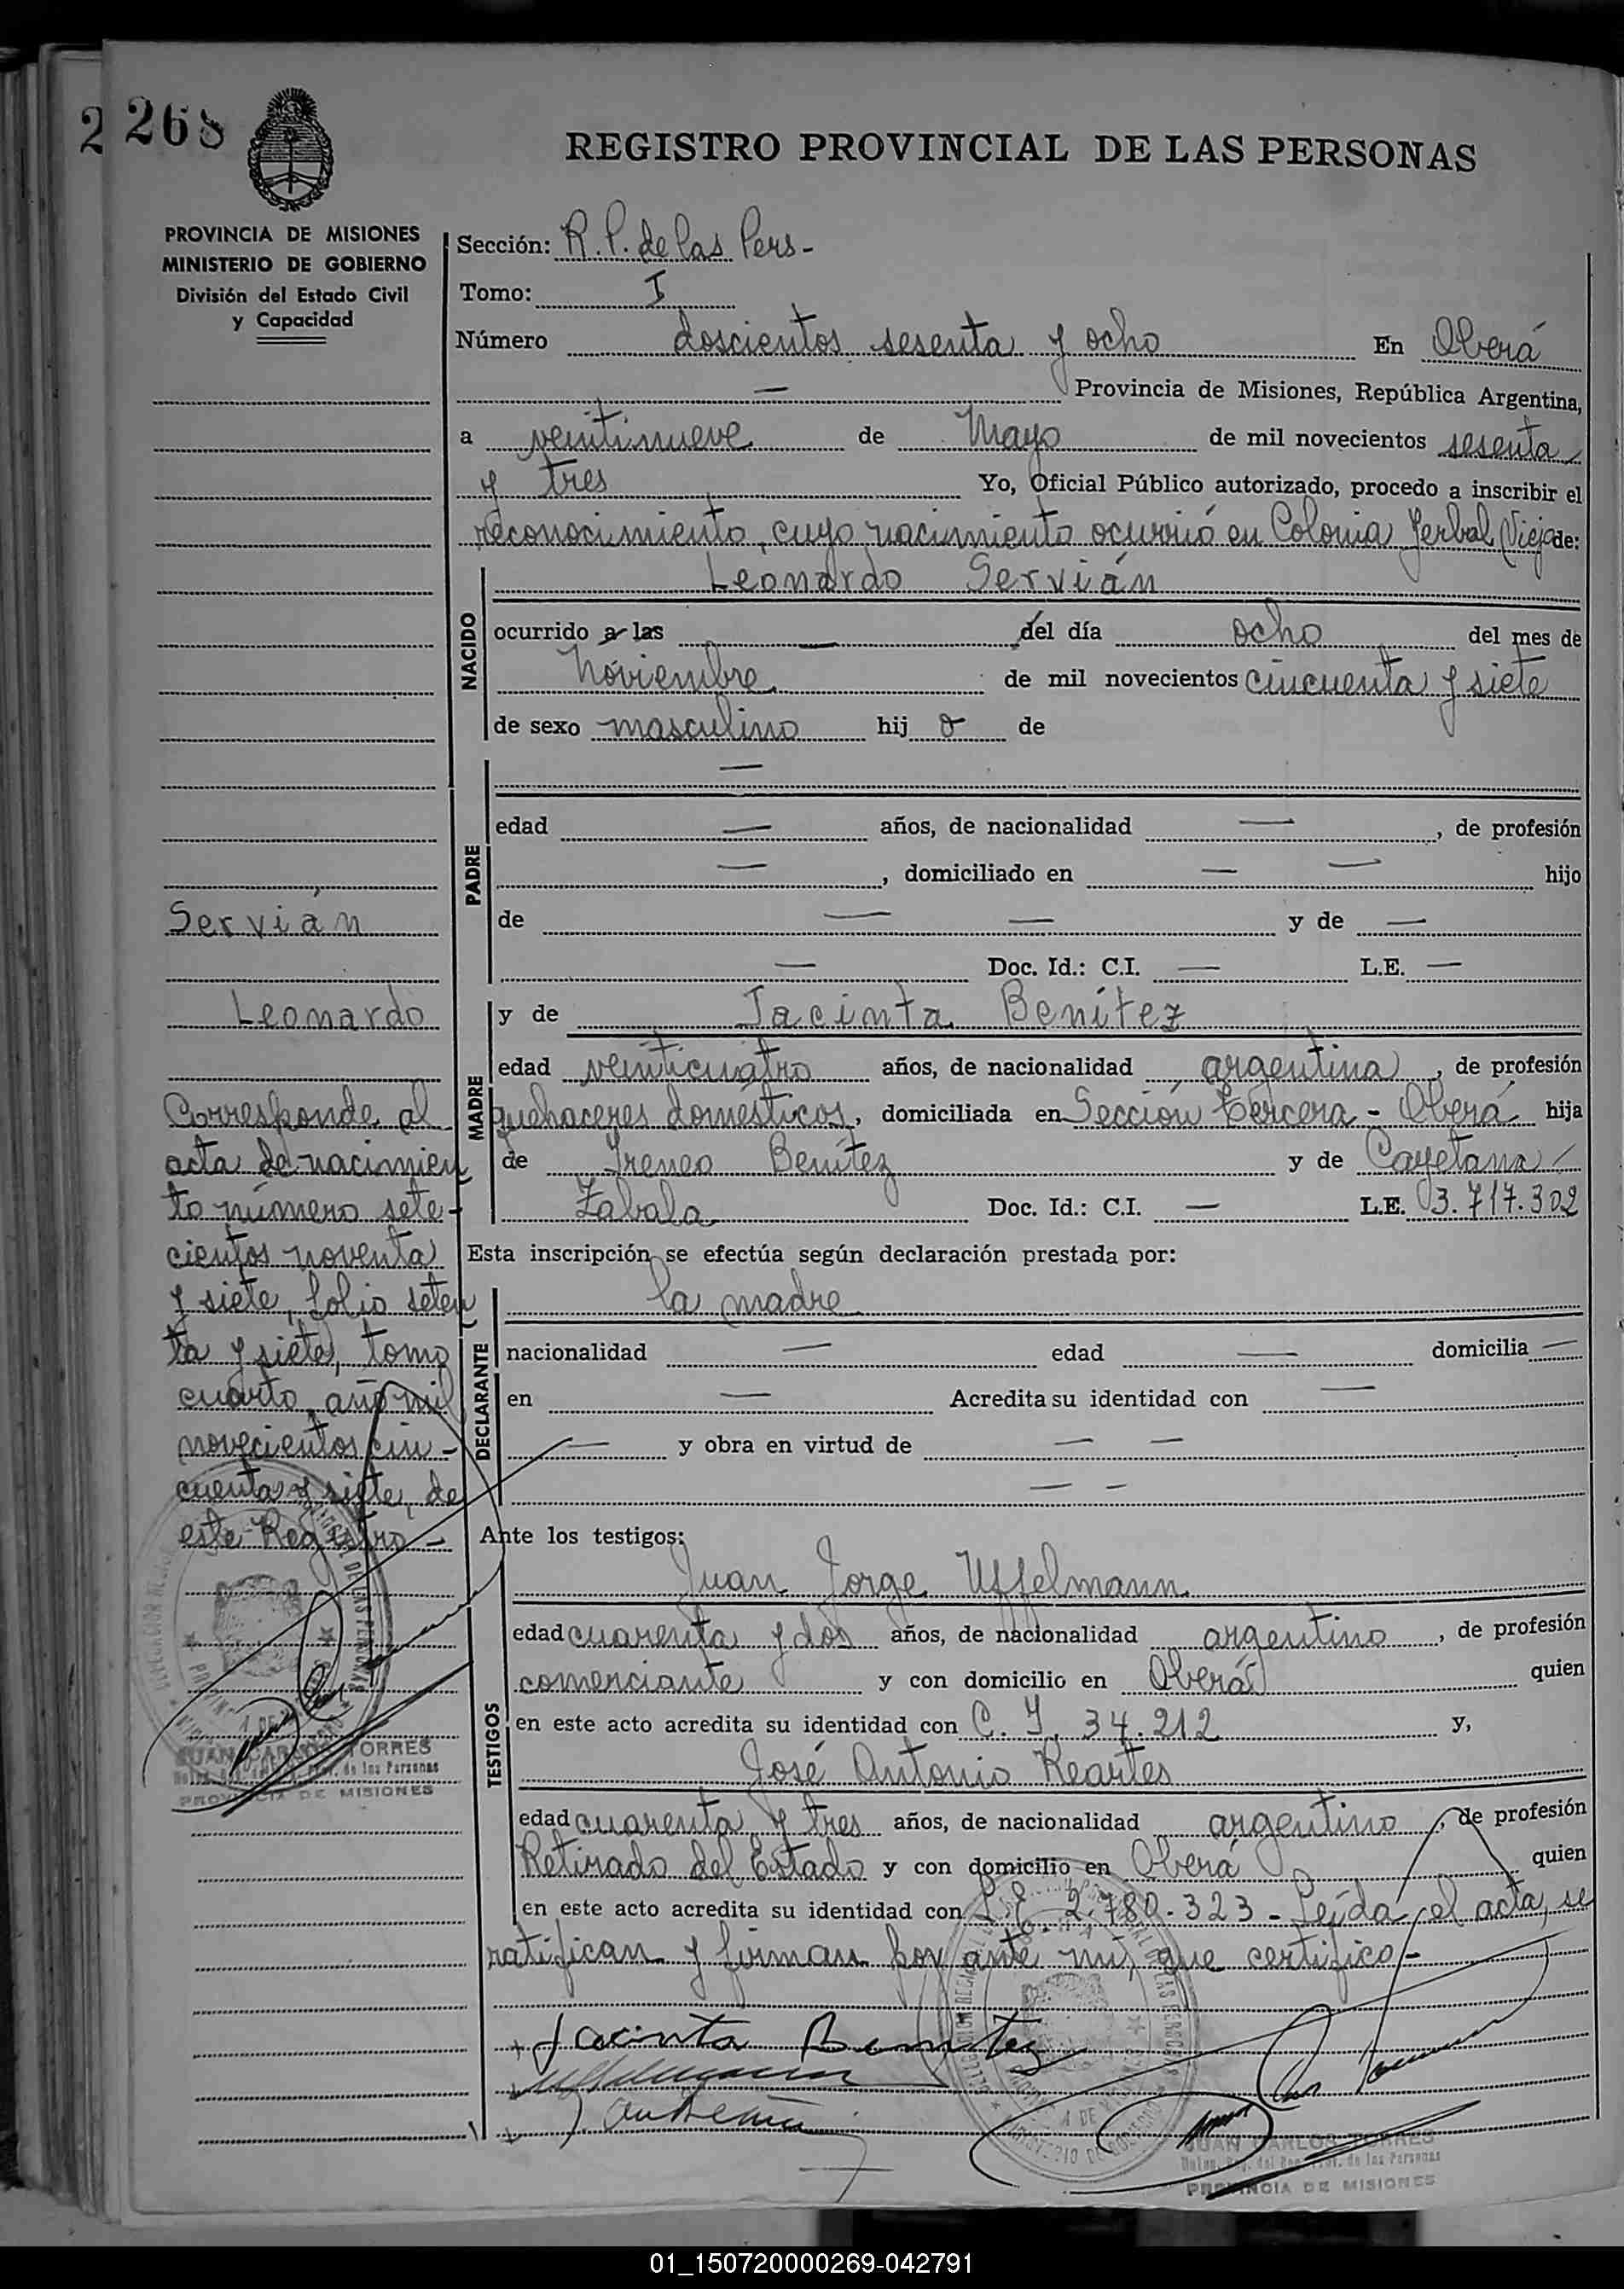 2 268
REGISTRO PROVINCIAL DE LAS PERSONAS
PROVINCIA DE MISIONES
MINISTERIO DE GOBIERNO
División del Estado Civil
y Capacidad
Sección: R. P. de las Pers-
Tomo: I
Número doscientos sesenta y ocho En Oberá
— Provincia de Misiones, República Argentina,
a veintinueve de Mayo de mil novecientos sesenta
y tres Yo, Oficial Público autorizado, procedo a inscribir el
reconocimiento, cuyo nacimiento ocurrió en Colonia Yerbal Viejo de:
NACIDO
Leonardo Servián
ocurrido a las — del día ocho del mes de
Noviembre de mil novecientos cincuenta y siete
de sexo masculino hij o de
PADRE
—
edad — años, de nacionalidad —, de profesión
—, domiciliado en — — hijo
de — — y de —
— Doc. Id.: C.I. — L.E. —
MADRE
y de Jacinta Benítez
edad veinticuatro años, de nacionalidad argentina, de profesión
quehaceres domésticos, domiciliada en Sección tercera - Oberá hija
de Ireneo Benítez y de Cayetana
Zabala Doc. Id.: C.I. — L.E. 3.717.302
Esta inscripción se efectúa según declaración prestada por:
DECLARANTE
la madre
nacionalidad — edad — domicilia —
en — Acredita su identidad con —
— y obra en virtud de — —
— -
Ante los testigos:
TESTIGOS
Juan Jorge Uffelmann
edad cuarenta y dos años, de nacionalidad argentino, de profesión
comerciante y con domicilio en Oberá quien
en este acto acredita su identidad con C. I. 34.212 y,
José Antonio Reartes
edad cuarenta y tres años, de nacionalidad argentino, de profesión
Retirado del Estado y con domicilio en Oberá quien
en este acto acredita su identidad con L.E. 2.780.323 - Leída el acta, se
ratifican y firman por ante mí, que certifico -
Jacinta Benitez
JUAN CARLOS TORRES
PROVINCIA DE MISIONES
Servián
Leonardo
Corresponde al
acta de nacimien
to número sete-
cientos noventa
y siete, folio seten
ta y siete, tomo
cuarto, año mil
novecientos cin-
cuenta y siete, de
este Registro -
JUAN CARLOS TORRES
de las Personas
PROVINCIA DE MISIONES
01_150720000269-042791